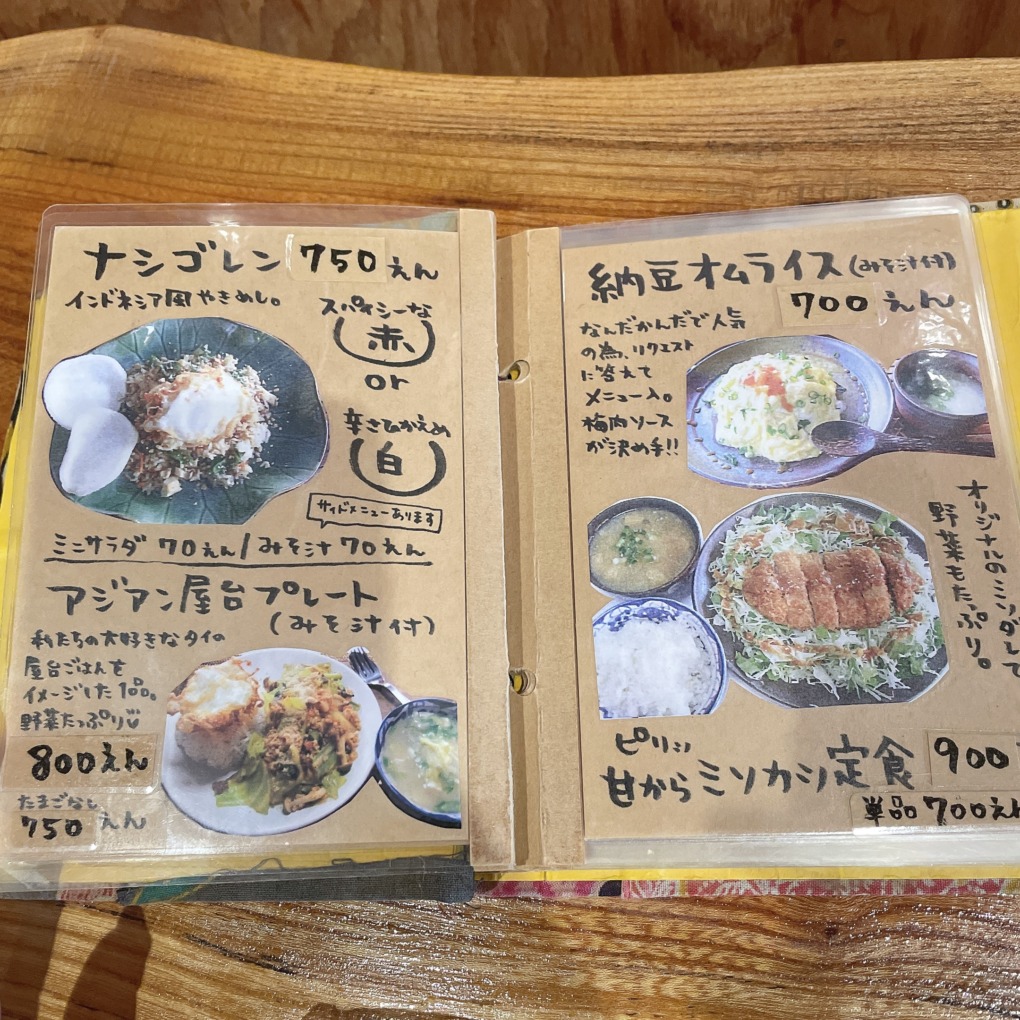 ナシゴレン 750えん
インドネシア風やきめし。
スパイシーな
赤
or
辛さひかえめ
白
サイドメニューあります
ミニサラダ 70えん/みそ汁 70えん
アジアン屋台プレート
(みそ汁付)
私たちの大好きなタイの
屋台ごはんを
イメージした1品。
野菜たっぷり
800えん
たまごなし
750えん
納豆オムライス(みそ汁付)
700えん
なんだかんだで人気
の為、リクエスト
に答えて
メニュー入。
梅肉ソース
が決め手!!
オリジナルのミソダレで
野菜もたっぷり。
ピリッ
甘から ミソカツ定食 900
単品 700えん